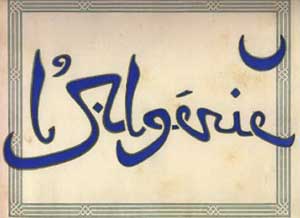 L'Algérie